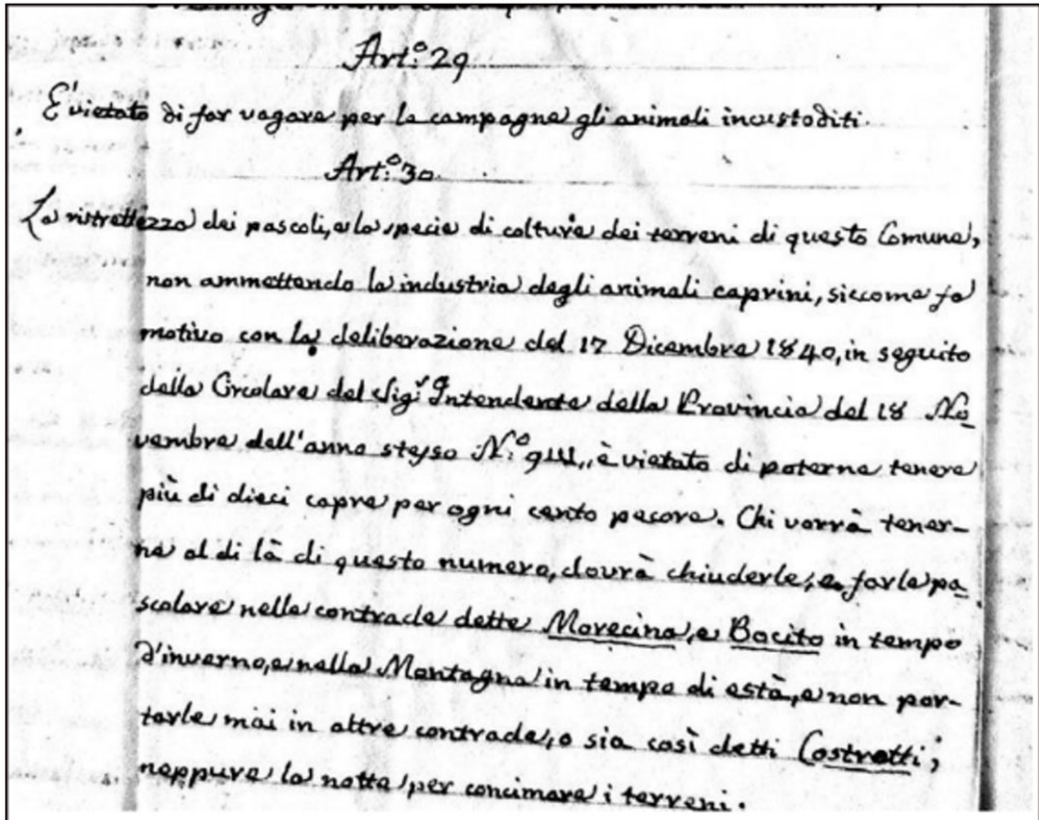 Art.º 29
È vietato di far vagare per le campagne gli animali incustoditi.
Art.º 30
La ristrettezza dei pascoli, e la specie di colture dei terreni di questo Comune,
non ammettendo la industria degli animali caprini, siccome fa
motivo con la deliberazione del 17 Dicembre 1840, in seguito
della Circolare del Sig.r Intendente della Provincia del 18 No
vembre dell'anno stesso N.º è vietato di poterne tenere
più di dieci capre per ogni cento pecore. Chi vorrà tener-
ne al di là di questo numero, dovrà chiuderle, e farle pa
scolare nelle contrade dette Morecine, e Bocito in tempo
d'inverno, e nella Montagna in tempo di està, e non por-
tarle mai in altre contrade, o sia così detti Costretti;
neppure la notte per concimare i terreni.